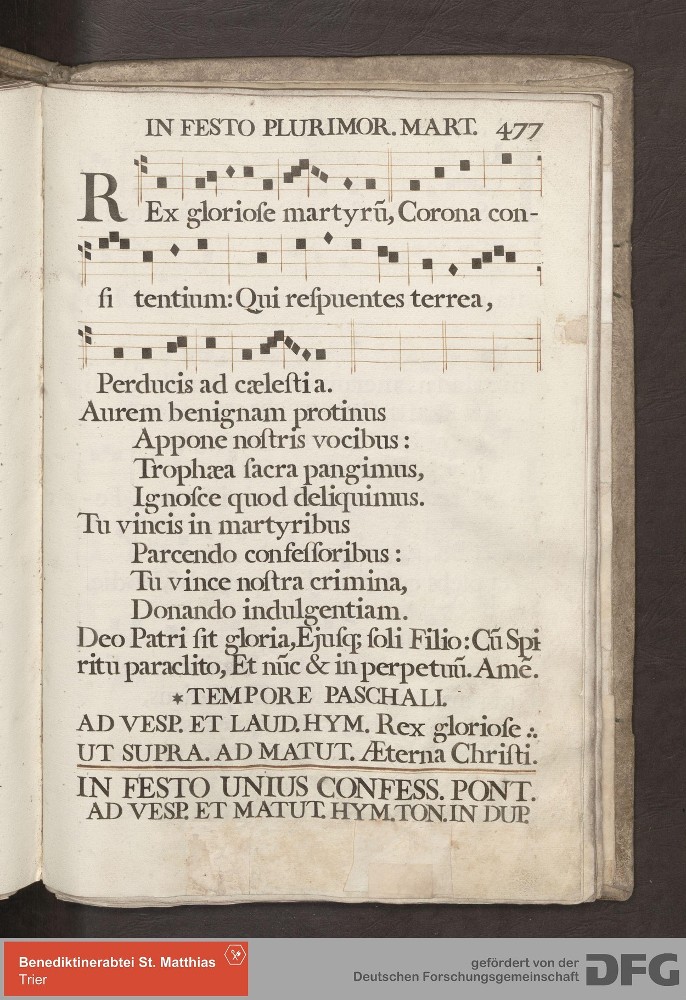 IN FESTO PLURIMOR. MART. 477
REx glorioſe martyrũ, Corona con-
ſi tentium: Qui reſpuentes terrea,
Perducis ad cæleſtia.
Aurem benignam protinus
Appone noſtris vocibus:
Trophæa ſacra pangimus,
Ignoſce quod deliquimus.
Tu vincis in martyribus
Parcendo confeſſoribus:
Tu vince noſtra crimina,
Donando indulgentiam.
Deo Patri ſit gloria, Ejuſq; ſoli Filio: Cũ Spi-
ritu paraclito, Et nũc & in perpetuũ. Amẽ.
*TEMPORE PASCHALI.
AD VESP. ET LAUD. HYM. Rex glorioſe ∴
UT SUPRA. AD MATUT. Æterna Chriſti.
IN FESTO UNIUS CONFESS. PONT.
AD VESP. ET MATUT. HYM. TON. IN DUP.
Benediktinerabtei St. Matthias
Trier
gefördert von der
Deutschen Forschungsgemeinschaft
DFG